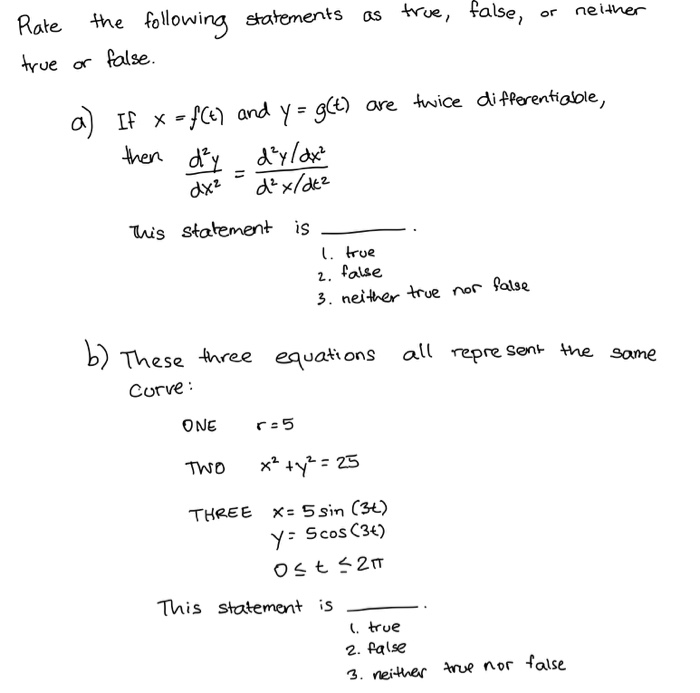 Rate the following statements as true, false, or neither
true or false.
a) If x = f(t) and y = g(t) are twice differentiable,
then d²y/dx² = (d²y/dx²)/(d²x/dt²)
This statement is ______.
1. true
2. false
3. neither true nor false
b) These three equations all represent the same
curve:
ONE r = 5
TWO x² + y² = 25
THREE x = 5 sin (3t)
y = 5 cos (3t)
0 ≤ t ≤ 2π
This statement is ______.
1. true
2. false
3. neither true nor false